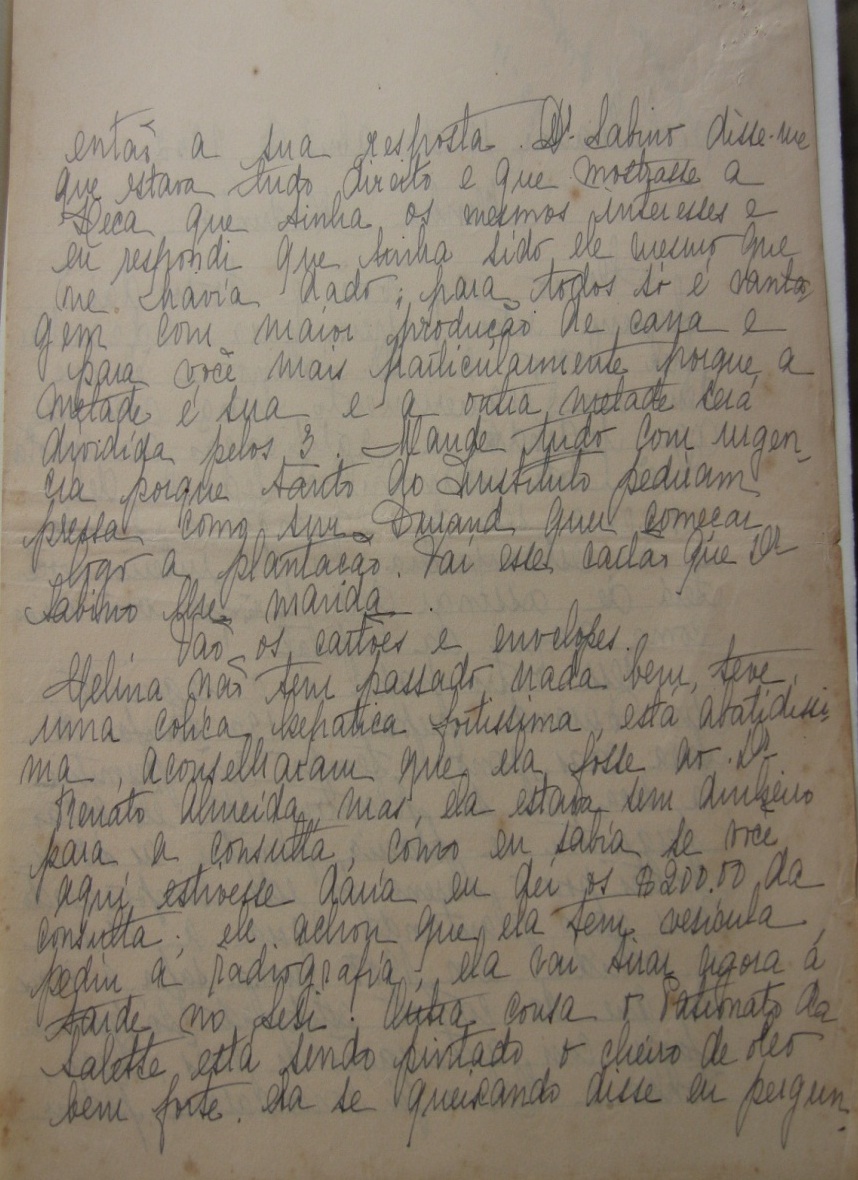 então a sua resposta. Dr. Sabino disse-me
que estava tudo direito e que mostrasse a
Zeca que tinha os mesmos interesses e
eu respondi que tinha sido ele mesmo que
me havia dado; para todos só é vanta-
gem com maior produção de cana e
para você mais particularmente porque a
metade é sua e a outra metade será
dividida pelos 3. Mande tudo com urgen-
cia porque tanto do Instituto pediram
pressa como sur Durand quer começar
logo a plantação. Vai esses cartão que Dr
Sabino lhe manda.
Vão os cartões e envelopes.
Melina não tem passado nada bem, teve
uma colica hepatica fortissima, está abatidissi-
ma, aconselharam que ela fosse ao Dr
Renato Almeida, mas, ela estava sem dinheiro
para a consulta, como eu sabia se você
aqui estivesse daria eu dei os $200.00 da
consulta; ele achou que ela tem vesicula,
pediu a radiografia; ela vai tirar agora á
tarde no Sesi. Outra cousa o Patronato da
Salette está sendo pintado o cheiro de oleo
bem forte. ela se queixando disse eu pergun-